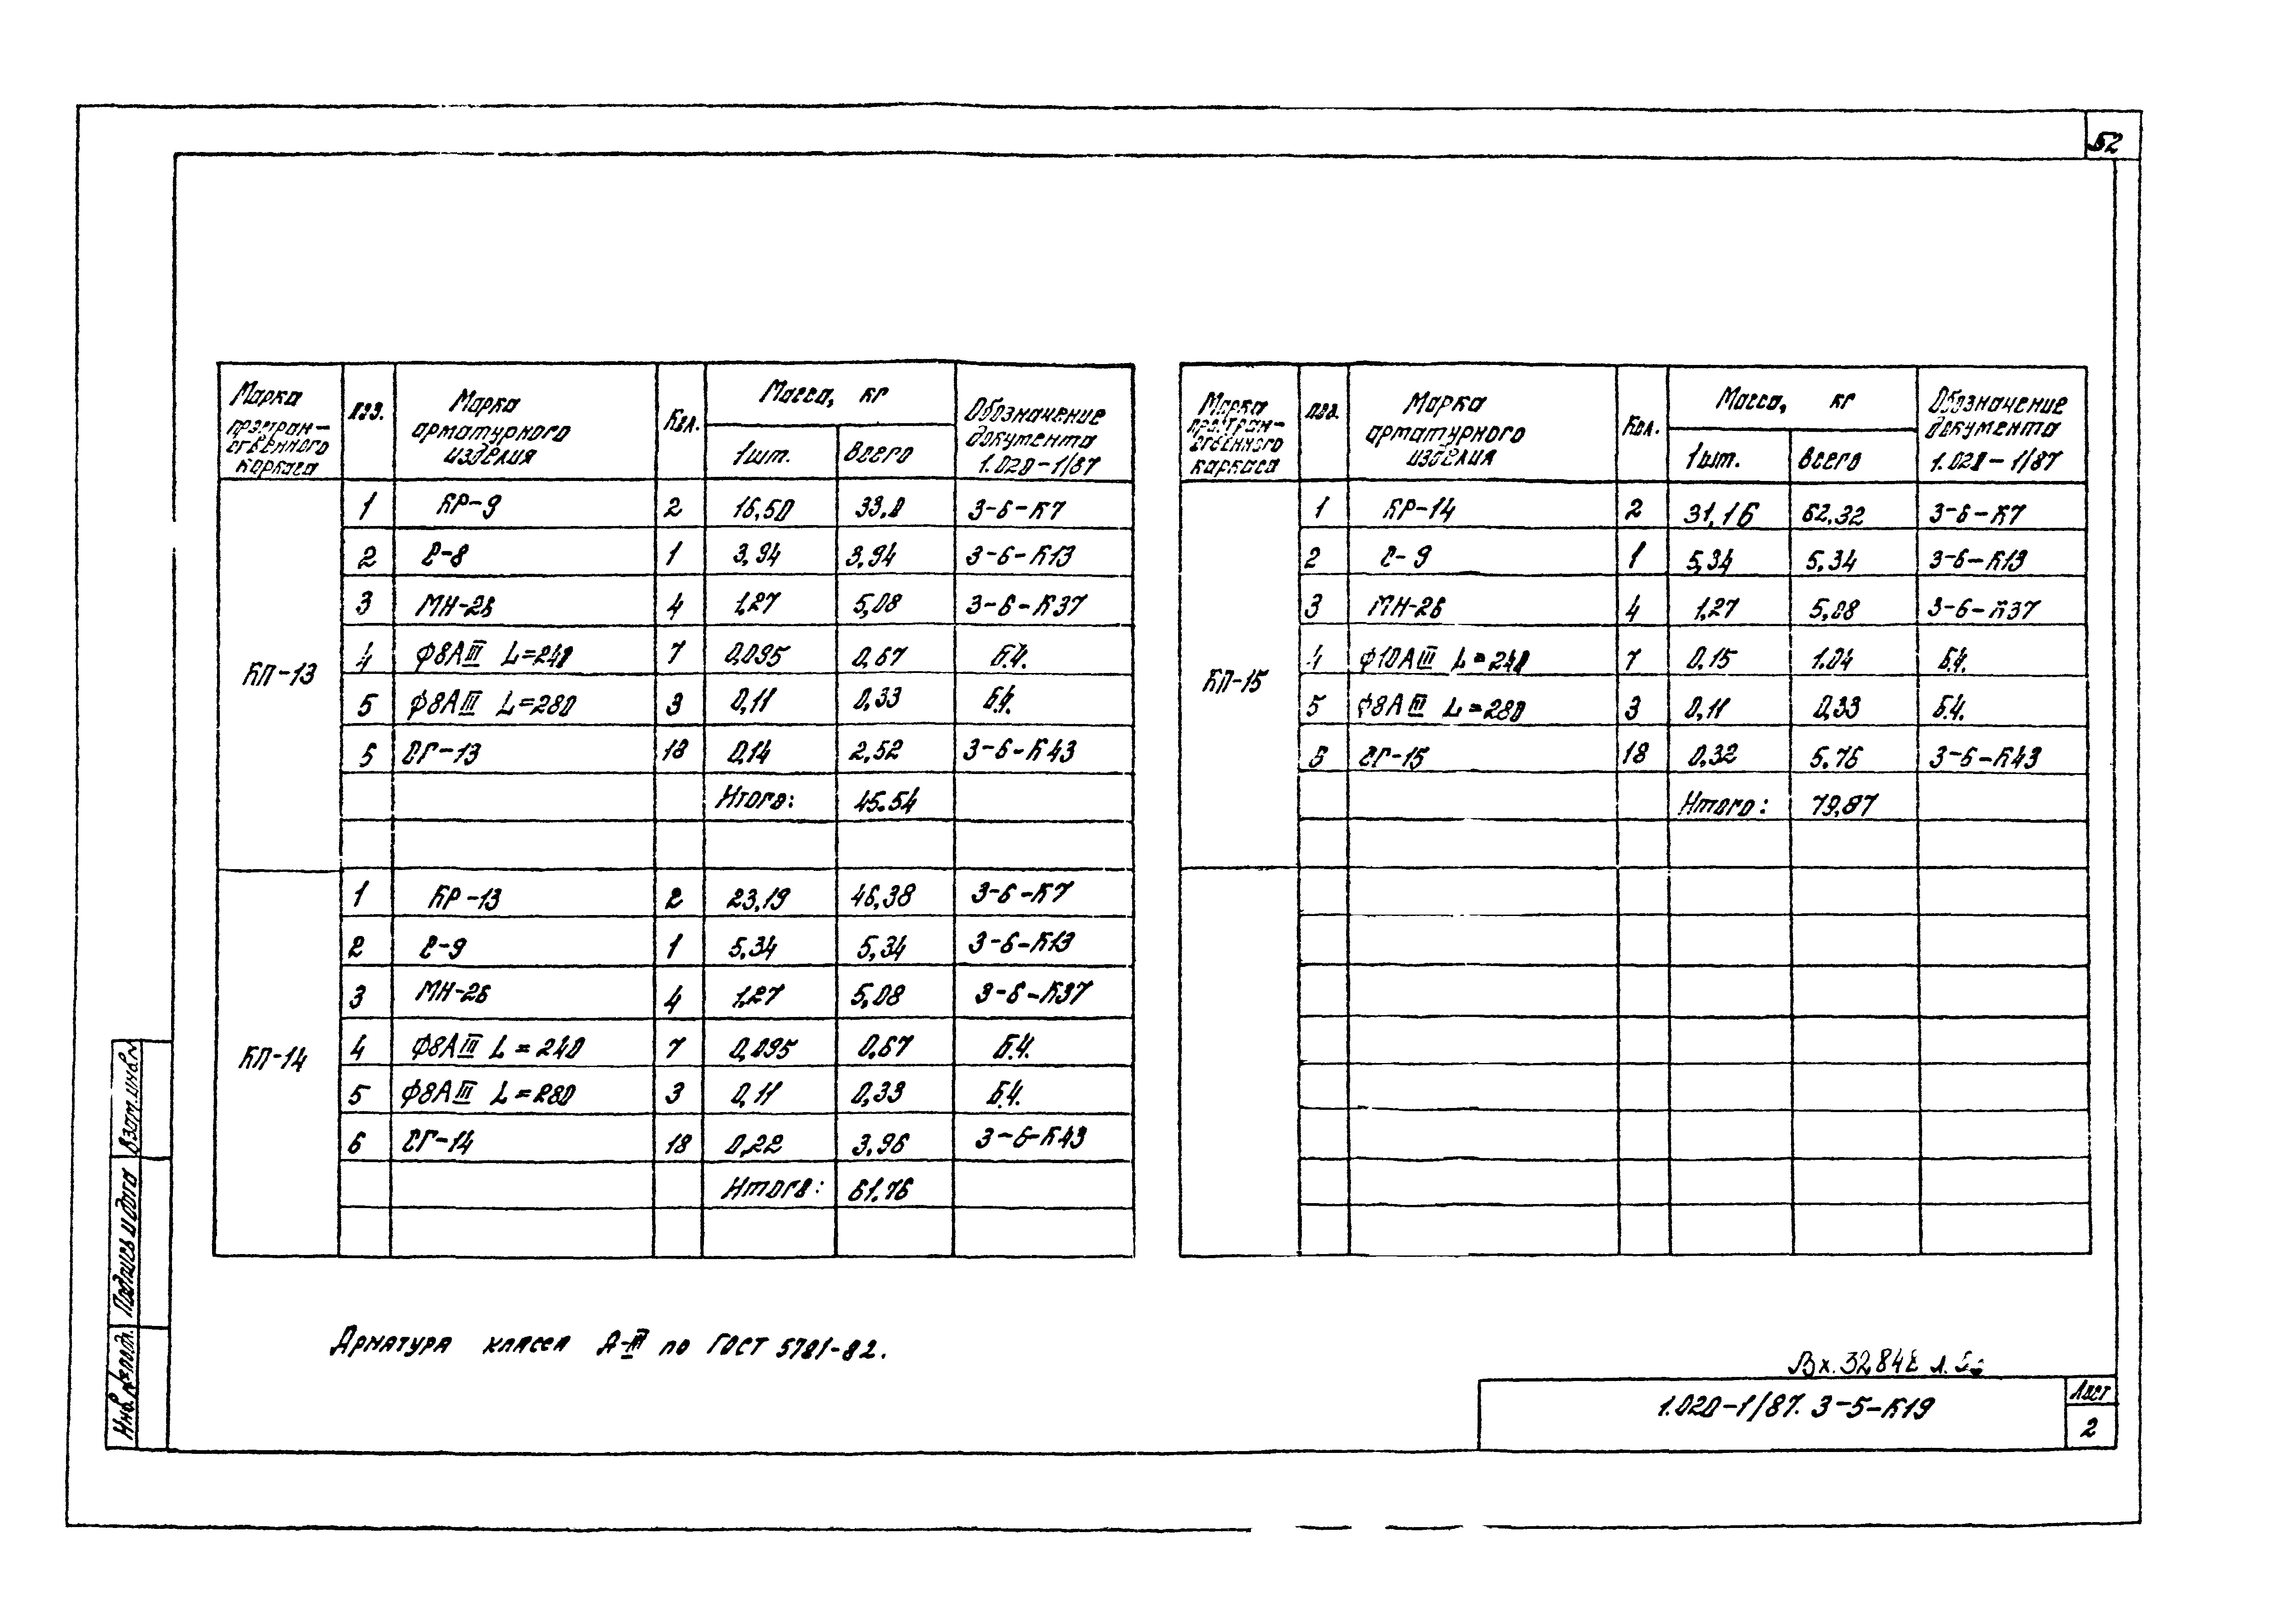 52
Марка пространственного каркаса | поз. | Марка арматурного изделия | Кол. | Масса, кг 1шт. | Масса, кг всего | Обозначение документа 1.020-1/87
КП-13 | 1 | КР-9 | 2 | 16,50 | 33,0 | 3-6-К7
2 | С-8 | 1 | 3,94 | 3,94 | 3-6-К13
3 | МН-26 | 4 | 1,27 | 5,08 | 3-6-К37
4 | ф8АIII L=240 | 7 | 0,095 | 0,67 | Б.Ч.
5 | ф8АIII L=280 | 3 | 0,11 | 0,33 | Б.Ч.
6 | СГ-13 | 18 | 0,14 | 2,52 | 3-6-К43
Итого: | 45.54
КП-14 | 1 | КР-13 | 2 | 23,19 | 46,38 | 3-6-К7
2 | С-9 | 1 | 5,34 | 5,34 | 3-6-К13
3 | МН-26 | 4 | 1,27 | 5,08 | 3-6-К37
4 | ф8АIII L=240 | 7 | 0,095 | 0,67 | Б.Ч.
5 | ф8АIII L=280 | 3 | 0,11 | 0,33 | Б.Ч.
6 | СГ-14 | 18 | 0,22 | 3,96 | 3-6-К43
Итого: | 61.76
Марка пространственного каркаса | поз. | Марка арматурного изделия | Кол. | Масса, кг 1шт. | Масса, кг всего | Обозначение документа 1.020-1/87
КП-15 | 1 | КР-14 | 2 | 31,16 | 62,32 | 3-6-К7
2 | С-9 | 1 | 5,34 | 5,34 | 3-6-К13
3 | МН-26 | 4 | 1,27 | 5,08 | 3-6-К37
4 | ф10АIII L=240 | 7 | 0,15 | 1.04 | Б.Ч.
5 | ф8АIII L=280 | 3 | 0,11 | 0,33 | Б.Ч.
6 | СГ-15 | 18 | 0,32 | 5.76 | 3-6-К43
Итого: | 79,87
Арматура класса А-III по ГОСТ 5781-82.
Инв.№подл. Подпись и дата Взам.инв.№
Вх.
1.020-1/87. 3-5-К19
Лист
2